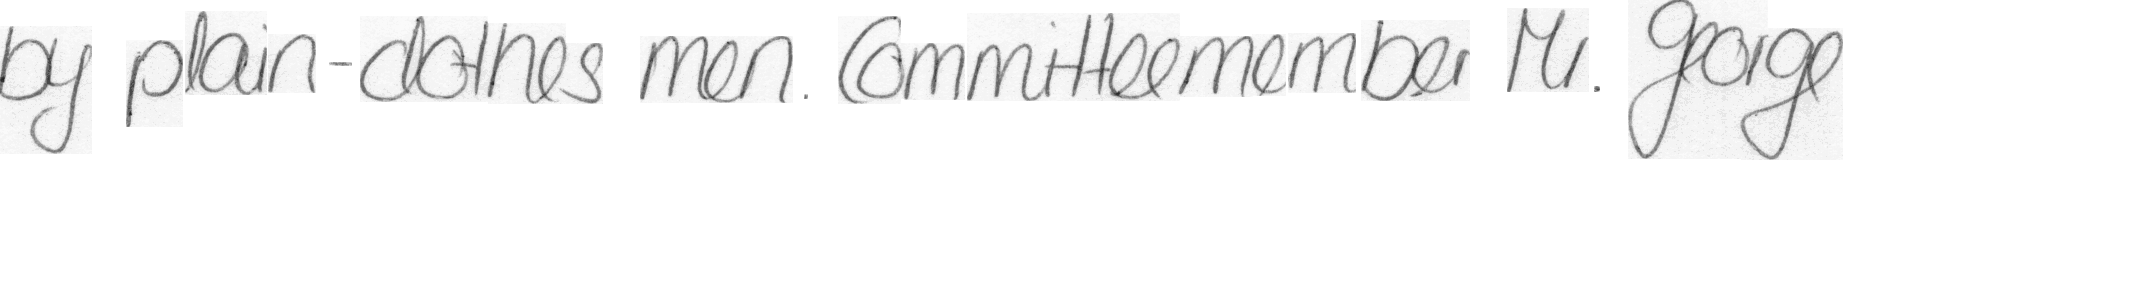 by plain-clothes men. Committeemember Mr. George